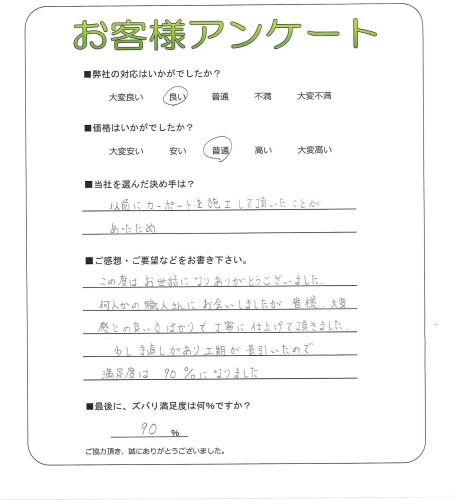 お客様アンケート
■弊社の対応はいかがでしたか？
大変良い 良い 普通 不満 大変不満
■価格はいかがでしたか？
大変安い 安い 普通 高い 大変高い
■当社を選んだ決め手は？
以前にカーポートを施工して頂いたことが
あったため
■ご感想・ご要望などをお書き下さい。
この度はお世話になりありがとうございました。
何人かの職人さんにお会いしましたが皆様、大変
感じの良い方ばかりで丁寧に仕上げて頂きました。
少し手直しがあり工期が長引いたので
満足度は 90%になりました
■最後に、ズバリ満足度は何%ですか？
90 %
ご協力頂き、誠にありがとうございました。